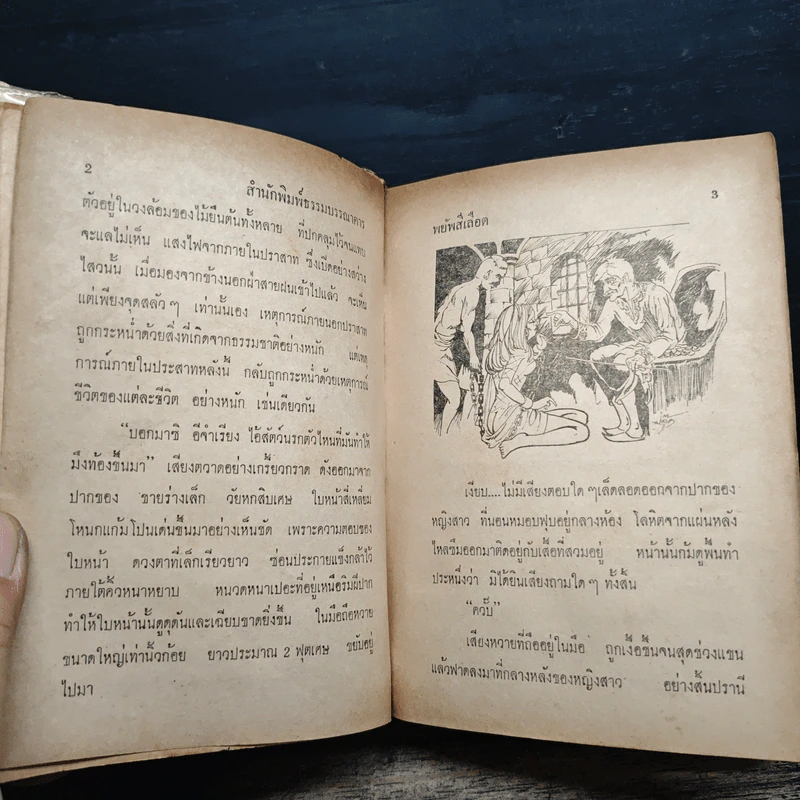 2
สำนักพิมพ์ธรรมบรรณาคาร
ตัวอยู่ในวงล้อมของไม้ยืนต้นทั้งหลาย ที่ปกคลุมไว้จนแทบ
จะแลไม่เห็น แสงไฟจากภายในปราสาท ซึ่งเปิดอย่างสว่าง
ไสวนั้น เมื่อมองจากข้างนอกฝ่าสายฝนเข้าไปแล้ว จะเห็น
แต่เพียงจุดสลัวๆ เท่านั้นเอง เหตุการณ์ภายนอกปราสาท
ถูกกระหน่ำด้วยสิ่งที่เกิดจากธรรมชาติอย่างหนัก แต่เหตุ
การณ์ภายในประสาทหลังนี้ กลับถูกกระหน่ำด้วยเหตุการณ์
ชีวิตของแต่ละชีวิต อย่างหนัก เช่นเดียวกัน
“บอกมาซิ อีจำเรียง ไอ้สัตว์นรกตัวไหนที่มันทำให้
มึงท้องขึ้นมา” เสียงตวาดอย่างเกรี้ยวกราด ดังออกมาจาก
ปากของ ชายร่างเล็ก วัยหกสิบเศษ ใบหน้าสี่เหลี่ยม
โหนกแก้มโปนเด่นขึ้นมาอย่างเห็นชัด เพราะความตอบของ
ใบหน้า ดวงตาที่เล็กเรียวยาว ซ่อนประกายแข็งกล้าไว้
ภายใต้คิ้วหนาหยาบ หนวดหนาเปอะที่อยู่เหนือริมฝีปาก
ทำให้ใบหน้านั้นดูดุดันและเฉียบขาดยิ่งขึ้น ในมือถือหวาย
ขนาดใหญ่เท่านิ้วก้อย ยาวประมาณ 2 ฟุตเศษ ขยับอยู่
ไปมา
3
พยัพสีเลือด
เงียบ....ไม่มีเสียงตอบใด ๆ เล็ดลอดออกจากปากของ
หญิงสาว ที่นอนหมอบฟุบอยู่กลางห้อง โลหิตจากแผ่นหลัง
ไหลซึมออกมาติดอยู่กับเสื้อที่สวมอยู่ หน้านั้นก้มดูพื้นทำ
ประหนึ่งว่า มิได้ยินเสียงถามใด ๆ ทั้งสิ้น
“ควั๊บ”
เสียงหวายที่ถืออยู่ในมือ ถูกเงื้อขึ้นจนสุดช่วงแขน
แล้วฟาดลงมาที่กลางหลังของหญิงสาว อย่างสิ้นปรานี